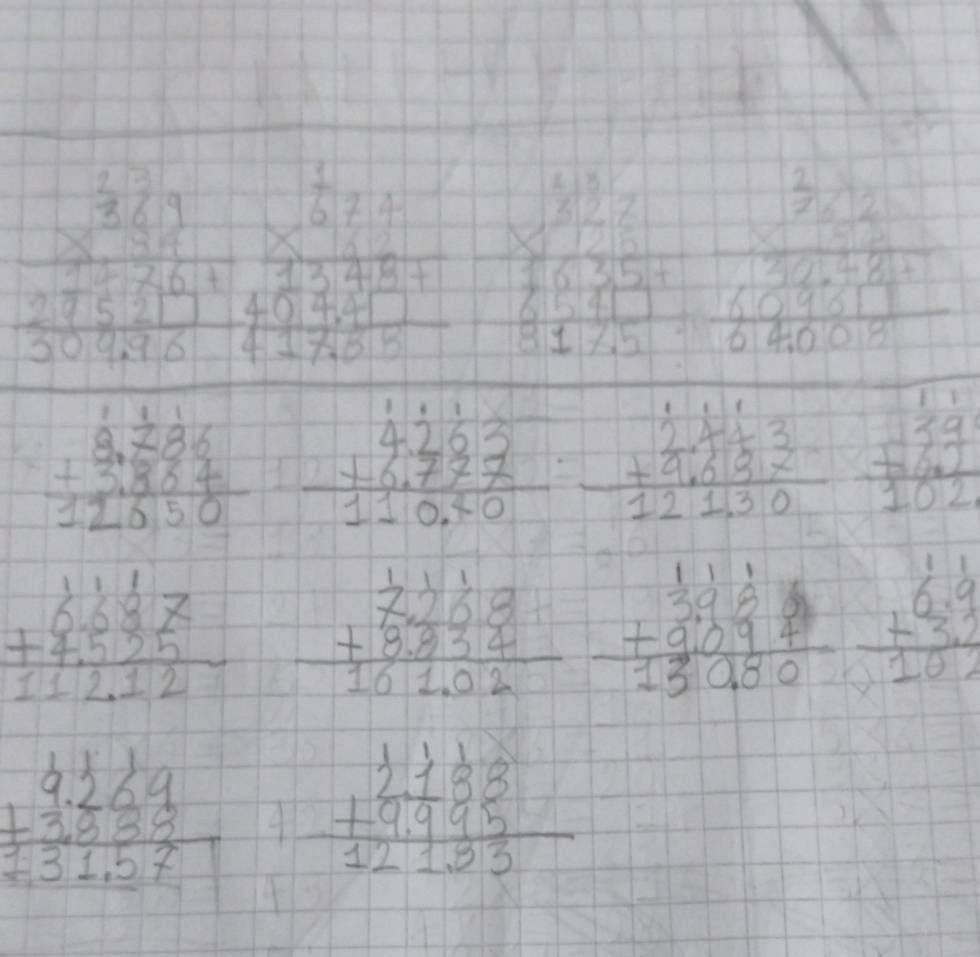 2 3 1 1 3 2
369 674 327 762
× 84 × 62 × 25 ×
1476+ 1348+ 1635+ +
2952□ 404.4□ 654□ 6096□
309.96 417.88 817.5 64.008
1 1 1 1 1 1 1 1 1 1 1
8.786 4.263 2.443 39
+3.864 +6.777 +9.687 +6.2
12650 110.40 121.30 102.
1 1 1 1 1 1 1 1 1 1 1
6.687 7.268 3986 6.9
+4.525 +8.834 +9094 +3.2
112.12 161.02 130.80 102
1 1 1 1 1 1
9.269 2.188
+3.888 +9.995
131.57 121.83